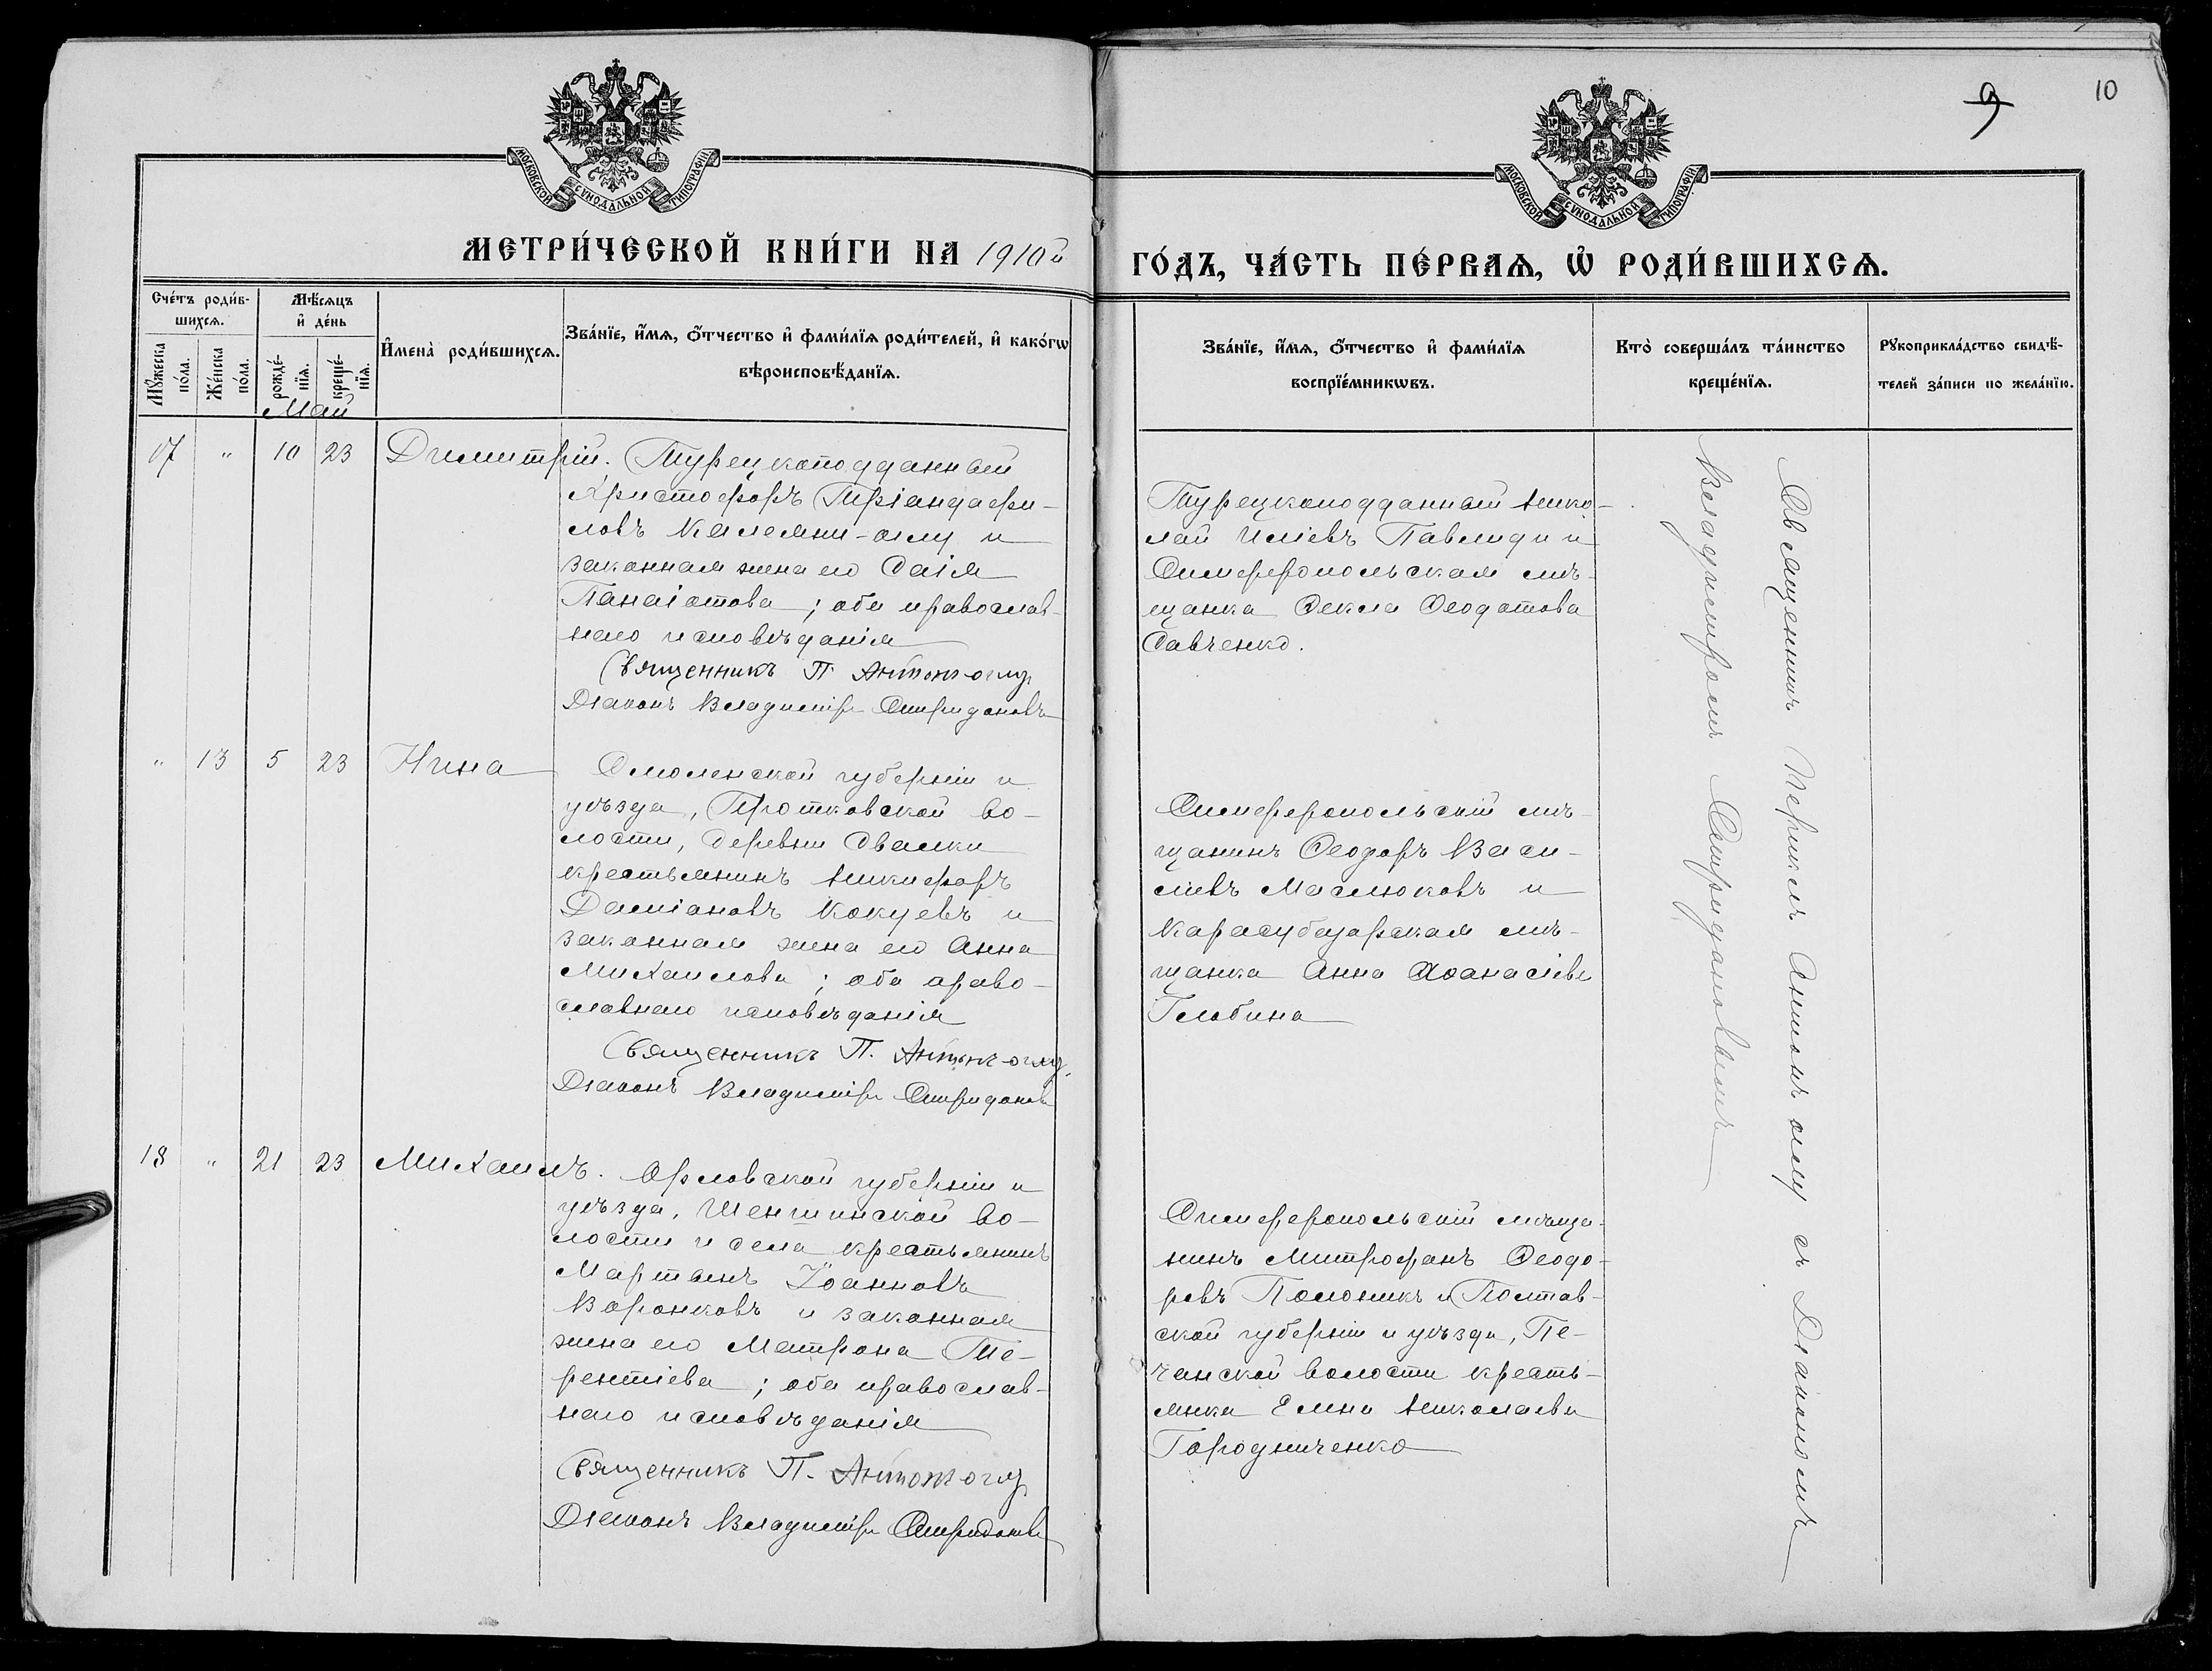 9 10
МОСКОВСКОЙ СѴНОДАЛЬНОЙ ТИПОГРАФІИ.
МОСКОВСКОЙ СѴНОДАЛЬНОЙ ТИПОГРАФІИ.
МЕТРИ́ЧЕСКОЙ КНИ́ГИ НА 1910й
ГО́ДЪ, ЧА́СТЬ ПЕ́РВАѦ, Ѿ РОДИ́ВШИХСѦ.
Сче́тъ роди́в-
шихсѧ.
Мꙋ́жеска
по́ла.
Же́нска
по́ла.
Мѣ́сѧцъ
и҆ де́нь
рожде́-
нїѧ.
креще́-
нїѧ.
И҆мена̀ роди́вшихсѧ.
Зва́нїе, и҆́мѧ, ѻ҆́тчество и҆ фами́лїѧ роди́телей, и҆ како́гѡ
вѣроисповѣ́данїѧ.
Зва́нїе, и҆́мѧ, ѻ҆́тчество и҆ фами́лїѧ
воспрїе́мникѡвъ.
Кто̀ соверша́лъ та́инство
креще́нїѧ.
Рꙋкоприкла́дство свидѣ́-
телей за́писи по жела́нїю.
Май
17 " 10 23 Димитрій.
Турецкоподданный
Христофоръ Тріандафи-
ловъ Калемжи-оглу и
законная жена его Саія
Панаіотова; оба православ-
наго исповѣданія
Священникъ П Антонъ-оглу
Діаконъ Владиміръ Спиридоновъ
Турецкоподданный Нико-
лай Иліевъ Павлиди и
Симферопольская мѣ-
щанка Ѳекла Ѳеодотова
Савченко.
" 13 5 23 Нина
Смоленской губерніи и
уѣзда, Протковской во-
лости, деревни Свалки
крестьянинъ Никифоръ
Даміановъ Кокуевъ и
законная жена его Анна
Михаилова; оба право-
славнаго исповѣданія
Священникъ П. Антонъ-оглу.
Діаконъ Владиміръ Спиридоновъ
Симферопольскій мѣ-
щанинъ Ѳеодоръ Васи-
ліевъ Маслюковъ и
Карасубазарская мѣ-
щанка Анна Аѳанасіева
Глобина
18 " 21 23 Михаилъ.
Орловской губерніи и
уѣзда, Шеншинской во-
лости и села крестьянинъ
Мартинъ Іоанновъ
Воронковъ и законная
жена его Матрона Те-
рентіева; оба православ-
наго исповѣданія
Священникъ П. Антонъ-оглу
Діаконъ Владиміръ Спиридоновъ
Симферопольскій мѣща-
нинъ Митрофанъ Ѳеодо-
ровъ Полоникъ и Полтав-
ской губерніи и уѣзда, Пе-
чанской волости кресть-
янка Елена Николаева
Городниченко
Священникъ Периклъ Антонъ оглу съ Діакономъ
Владиміромъ Спиридоновымъ